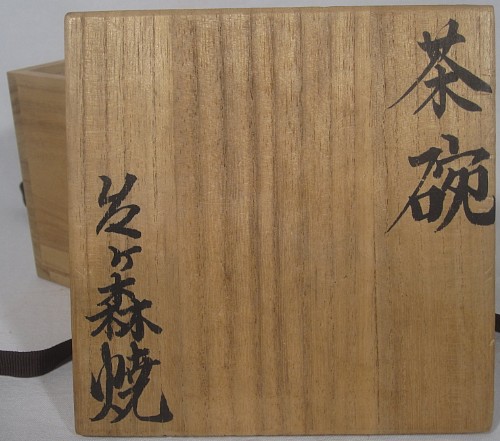 茶碗
台ヶ森焼